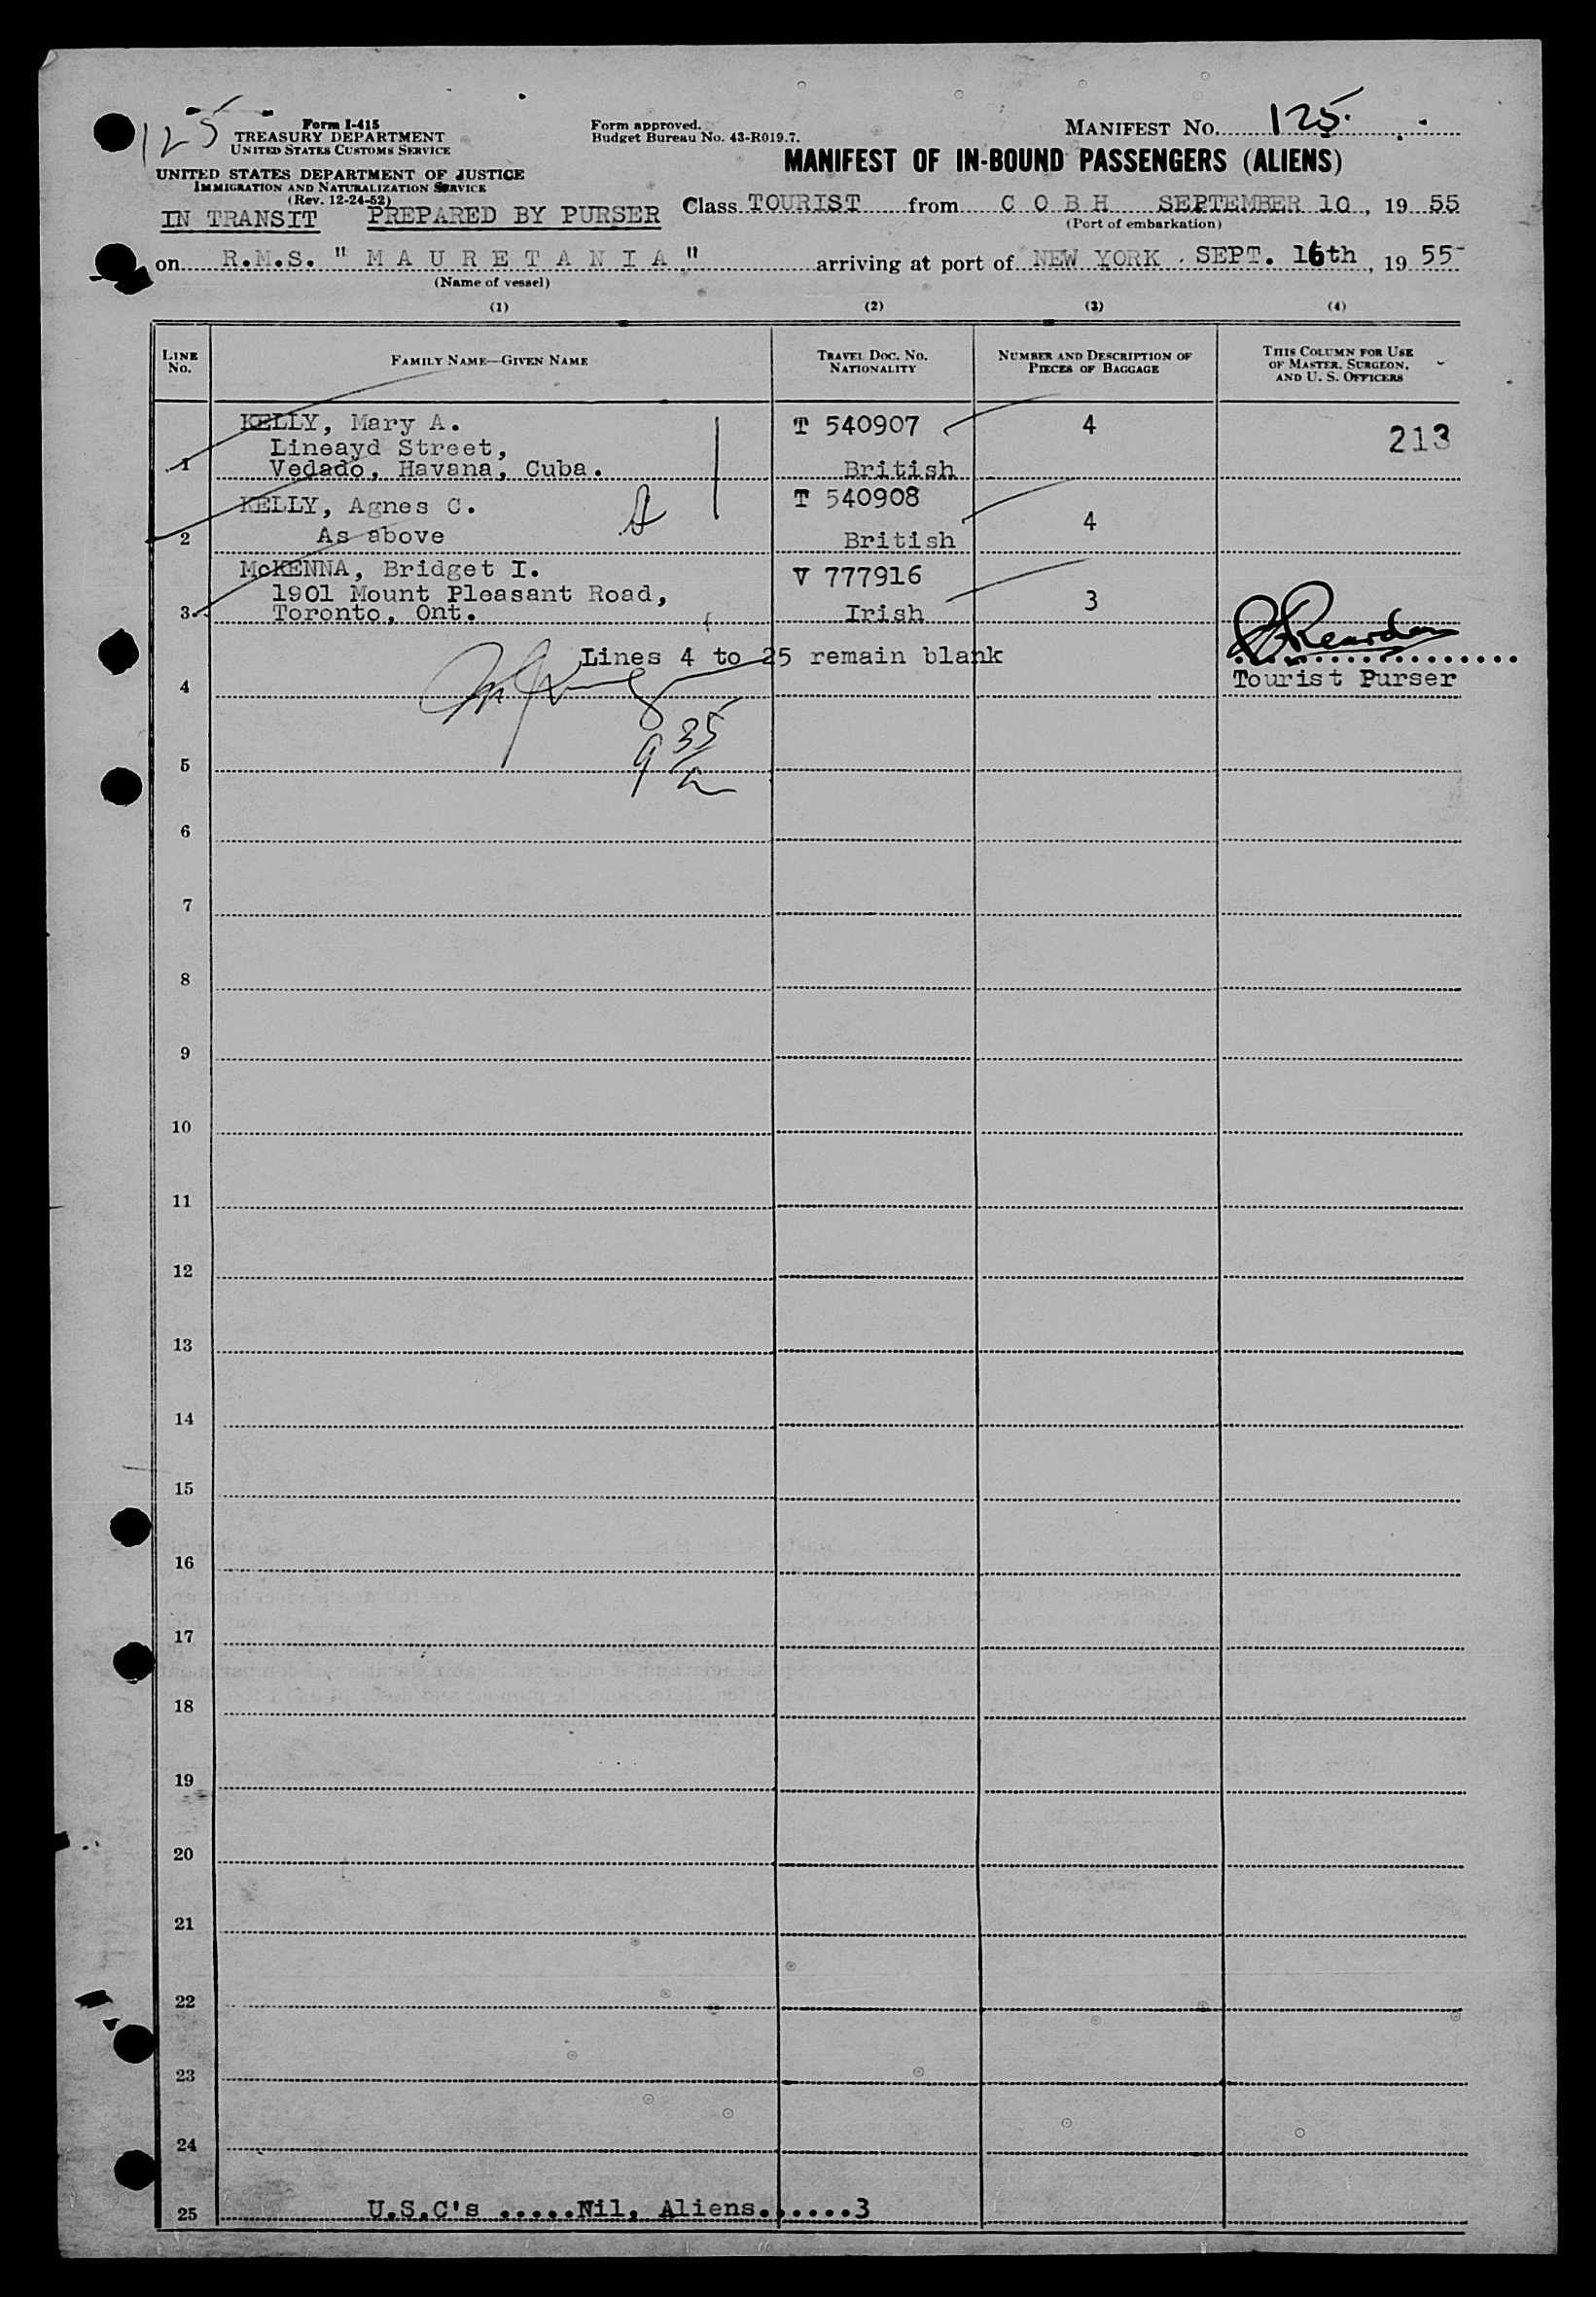 125
Form I-415
TREASURY DEPARTMENT
UNITED STATES CUSTOMS SERVICE
UNITED STATES DEPARTMENT OF JUSTICE
IMMIGRATION AND NATURALIZATION SERVICE
(Rev. 12-24-52)
IN TRANSIT PREPARED BY PURSER
Form approved.
Budget Bureau No. 43-R019.7.
MANIFEST No. 125.
MANIFEST OF IN-BOUND PASSENGERS (ALIENS)
Class TOURIST from C O B H SEPTEMBER 10, 19 55
(Port of embarkation)
on R.M.S. " M A U R E T A N I A " arriving at port of NEW YORK . SEPT. 16th, 19 55
(Name of vessel)
(1) (2) (3) (4)
LINE No. FAMILY NAME—GIVEN NAME TRAVEL DOC. NO. NATIONALITY NUMBER AND DESCRIPTION OF PIECES OF BAGGAGE THIS COLUMN FOR USE OF MASTER, SURGEON, AND U. S. OFFICERS
KELLY, Mary A. T 540907 4 213
Lineayd Street,
1 Vedado, Havana, Cuba. British
KELLY, Agnes C. T 540908
2 As above British 4
McKENNA, Bridget I. V 777916
1901 Mount Pleasant Road,
3 Toronto, Ont. Irish 3
Lines 4 to 25 remain blank
4 Tourist Purser
9 35
5
6
7
8
9
10
11
12
13
14
15
16
17
18
19
20
21
22
23
24
25 U.S.C's .....Nil, Aliens......3